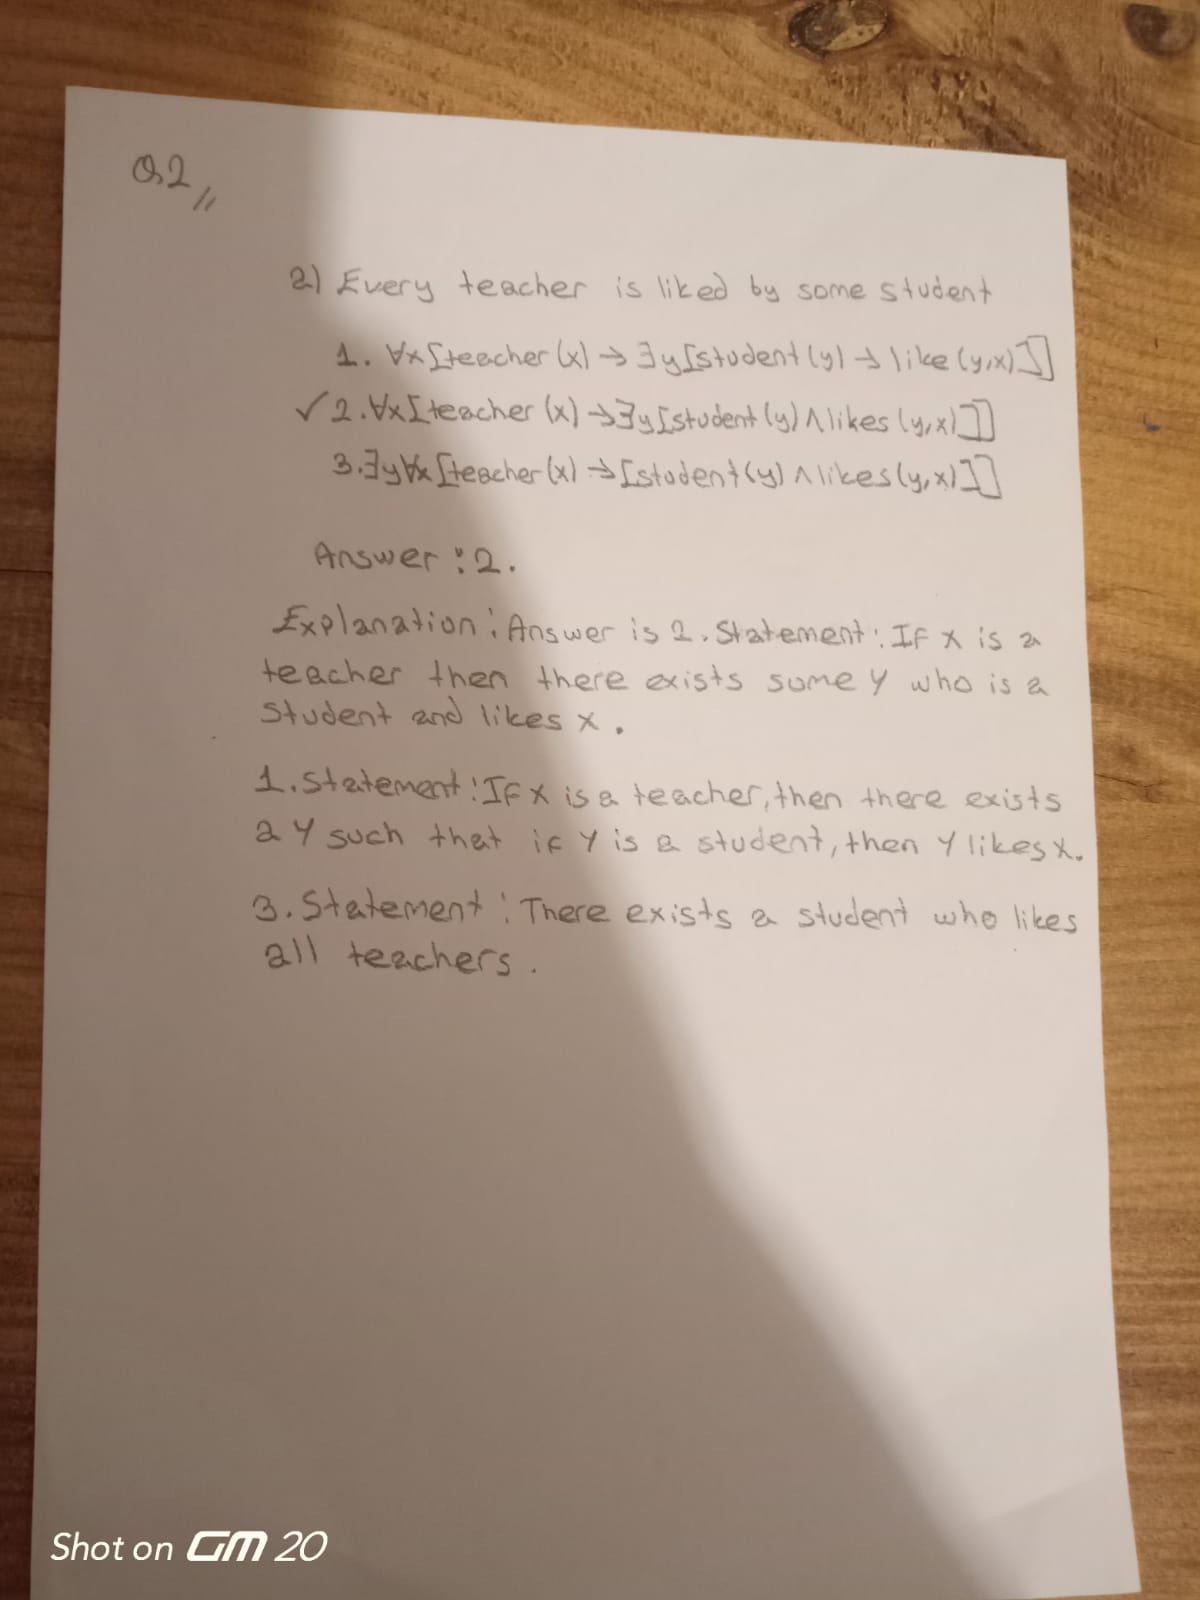 Q2 //
a) Every teacher is liked by some student
1. ∀x[teacher(x) → ∃y[student(y) → like(y,x)]]
✓ 2. ∀x[teacher(x) → ∃y[student(y) ∧ likes(y,x)]]
3. ∃y∀x[teacher(x) → [student(y) ∧ likes(y,x)]]
Answer : 2.
Explanation : Answer is 2. Statement : If x is a
teacher then there exists some y who is a
student and likes x.
1. Statement : If x is a teacher, then there exists
a y such that if y is a student, then y likes x.
3. Statement : There exists a student who likes
all teachers.
Shot on GM 20